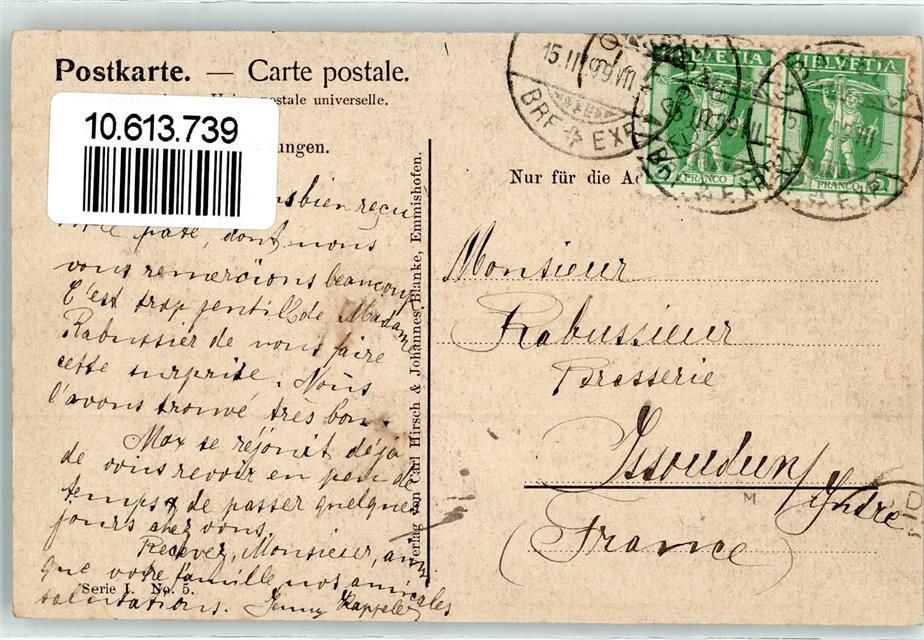 Postkarte. — Carte postale.
postale universelle.
10.613.739
ungen.
Nur für die
HELVETIA
HELVETIA
FRANCO
FRANCO
15.III.09.VII
BRF. EXP.
bien reçu
pâté, dont nous
vous remercions beaucoup.
C'est trop gentil de Madame
Rabussier de vous faire
cette surprise. Nous
l'avons trouvé très bon.
Max se réjouit déjà
de vous revoir en peu de
temps & de passer quelques
jours chez vous.
Recevez, Monsieur,
que votre famille nos amicales
salutations. Jenny Kappeler
Serie I. No. 5.
Verlag von Carl Hirsch & Johannes Blanke, Emmishofen.
Monsieur
Rabussieur
Brasserie
Issoudun/Yndre
(France)
M